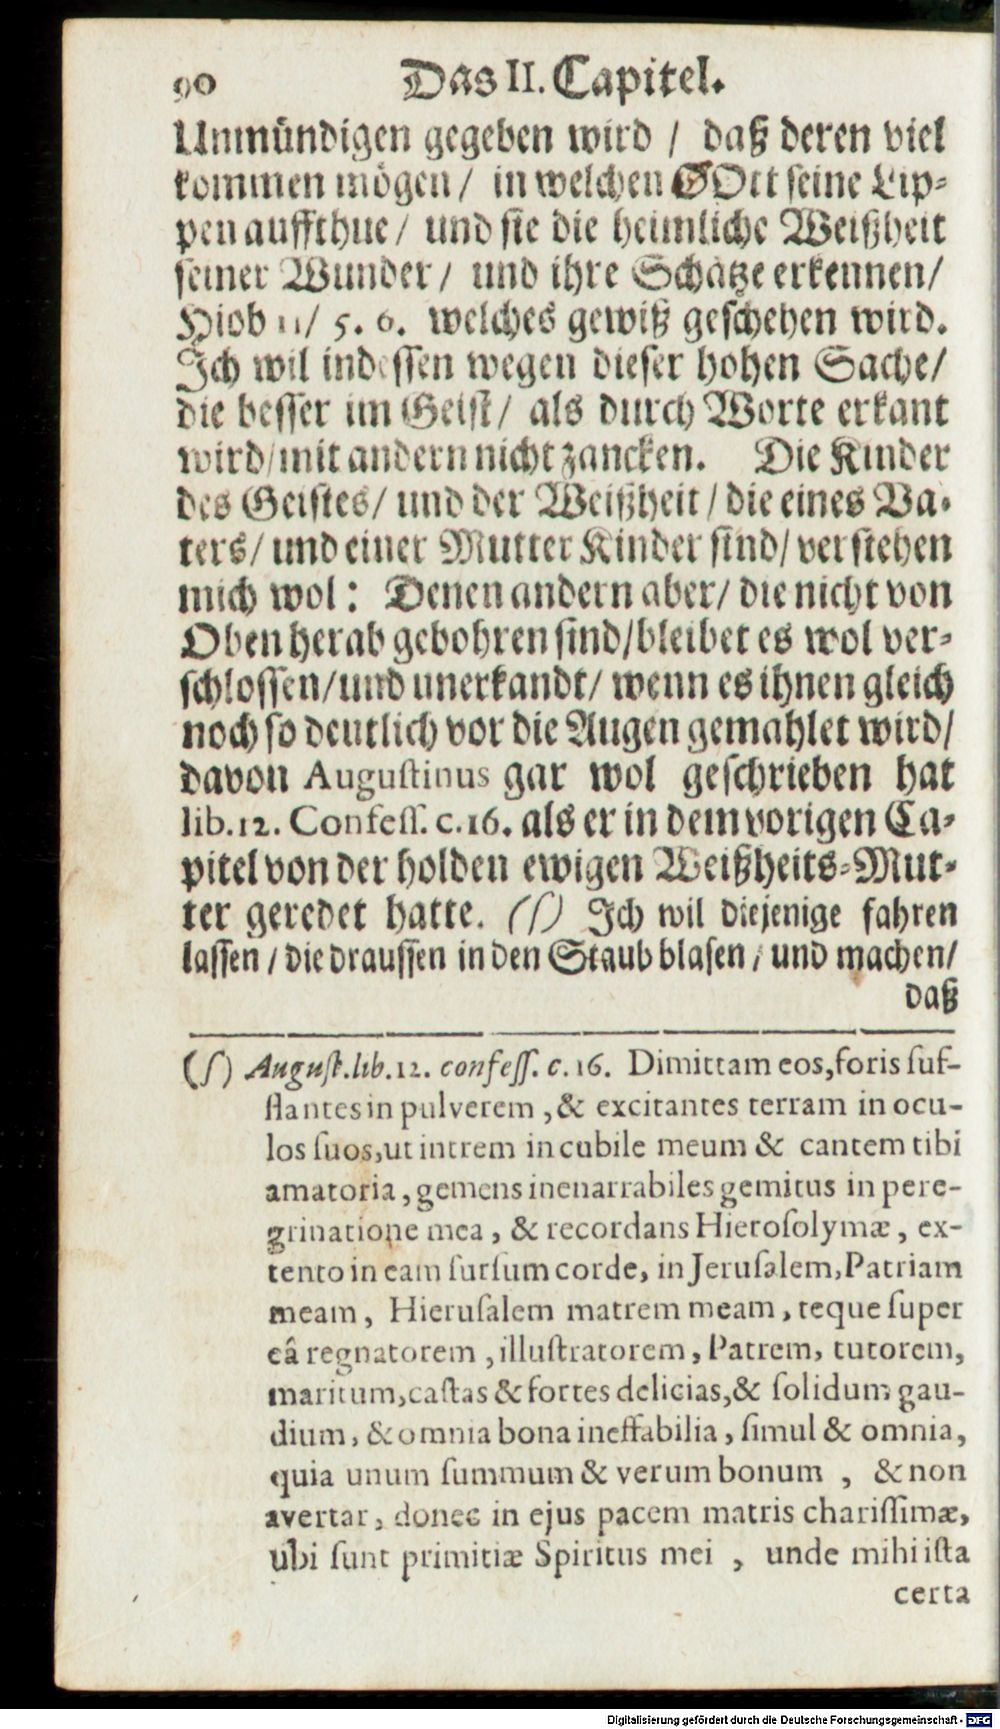 90 Das II. Capitel.
Unmündigen gegeben wird / daß deren viel
kommen mögen / in welchen GOtt seine Lip-
pen auffthue / und sie die heimliche Weißheit
seiner Wunder / und ihre Schätze erkennen /
Hiob 11 / 5. 6. welches gewiß geschehen wird.
Ich wil indessen wegen dieser hohen Sache /
die besser im Geist / als durch Worte erkant
wird / mit andern nicht zancken. Die Kinder
des Geistes / und der Weißheit / die eines Va-
ters / und einer Mutter Kinder sind / verstehen
mich wol: Denen andern aber / die nicht von
Oben herab gebohren sind / bleibet es wol ver-
schlossen / und unerkandt / wenn es ihnen gleich
noch so deutlich vor die Augen gemahlet wird /
davon Augustinus gar wol geschrieben hat
lib. 12. Confess. c. 16. als er in dem vorigen Ca-
pitel von der holden ewigen Weißheits-Mut-
ter geredet hatte. (ſ) Ich wil diejenige fahren
lassen / die draussen in den Staub blasen / und machen /
daß
(ſ) August. lib. 12. confess. c. 16. Dimittam eos, foris suf-
flantes in pulverem, & excitantes terram in ocu-
los suos, ut intrem in cubile meum & cantem tibi
amatoria, gemens inenarrabiles gemitus in pere-
grinatione mea, & recordans Hierosolymæ, ex-
tento in eam sursum corde, in Jerusalem, Patriam
meam, Hierusalem matrem meam, teque super
eâ regnatorem, illustratorem, Patrem, tutorem,
maritum, castas & fortes delicias, & solidum gau-
dium, & omnia bona ineffabilia, simul & omnia,
quia unum summum & verum bonum, & non
avertar, donec in ejus pacem matris charissimæ,
ubi sunt primitiæ Spiritus mei, unde mihi ista
certa
Digitalisierung gefördert durch die Deutsche Forschungsgemeinschaft - DFG